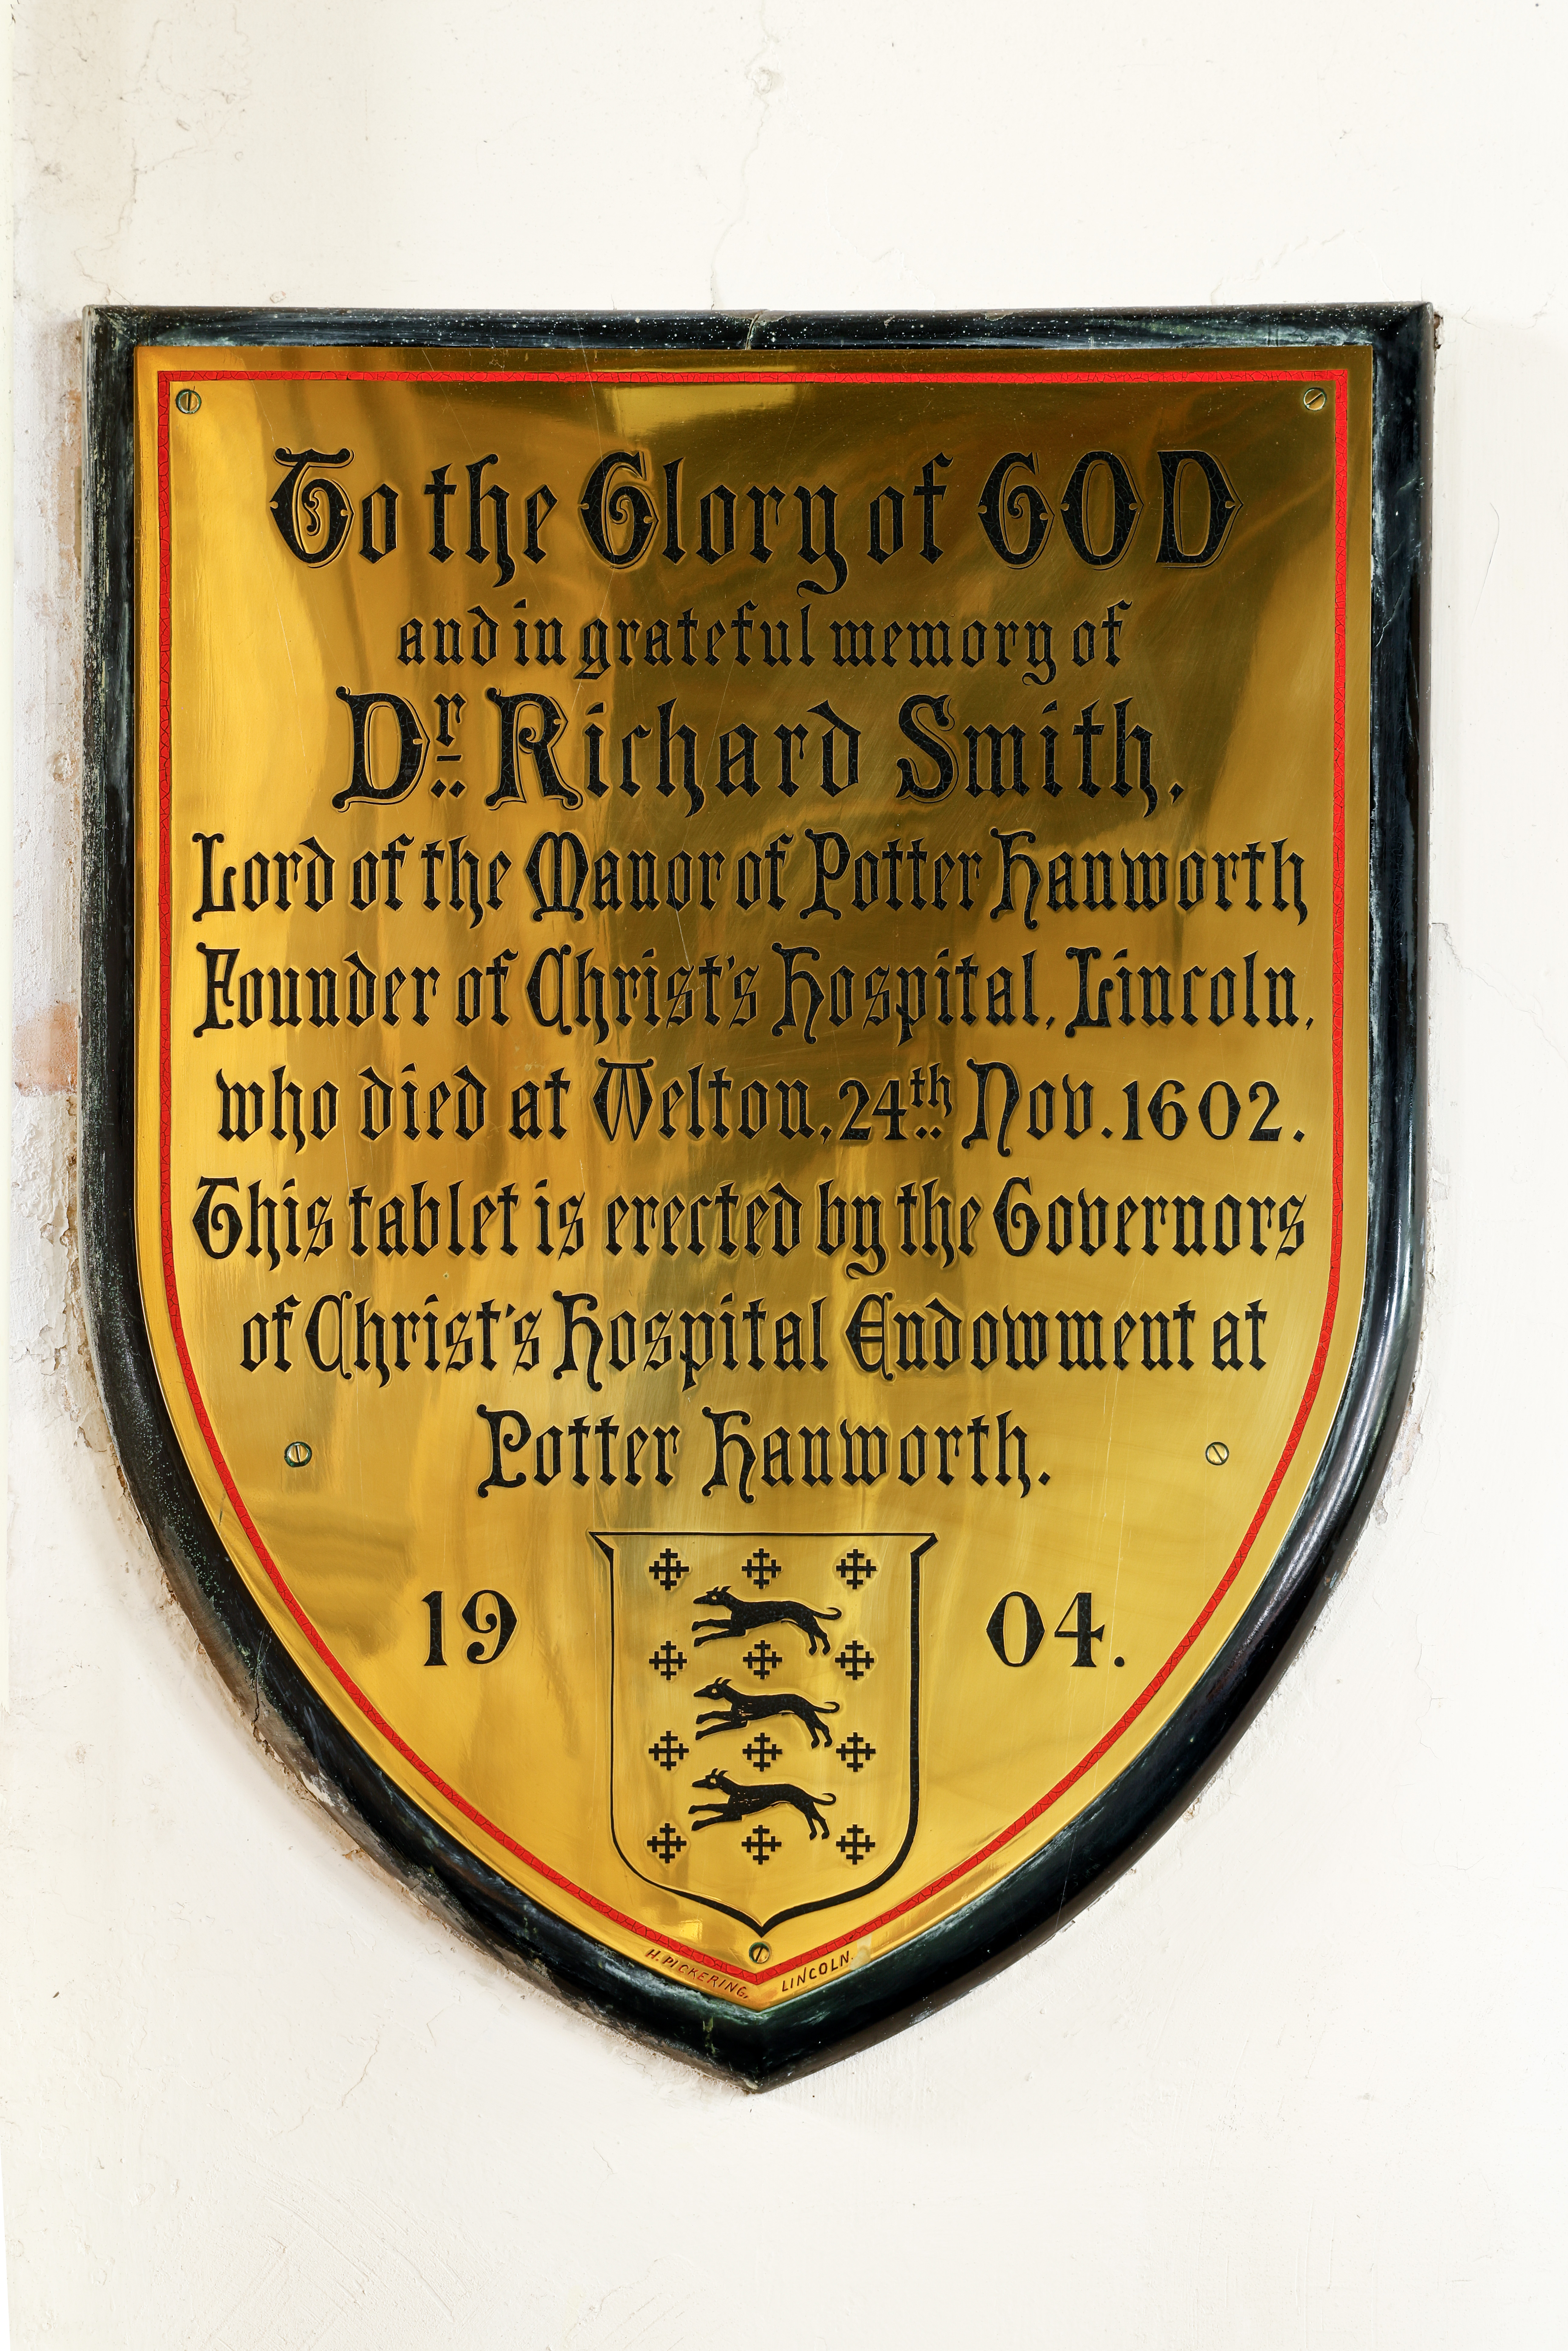 To the Glory of GOD
and in grateful memory of
Dr. Richard Smith,
Lord of the Manor of Potter Hanworth
Founder of Christ's Hospital, Lincoln,
who died at Welton, 24th Nov. 1602.
This tablet is erected by the Governors
of Christ's Hospital Endowment at
Potter Hanworth.
19 04.
H. PICKERING, LINCOLN.